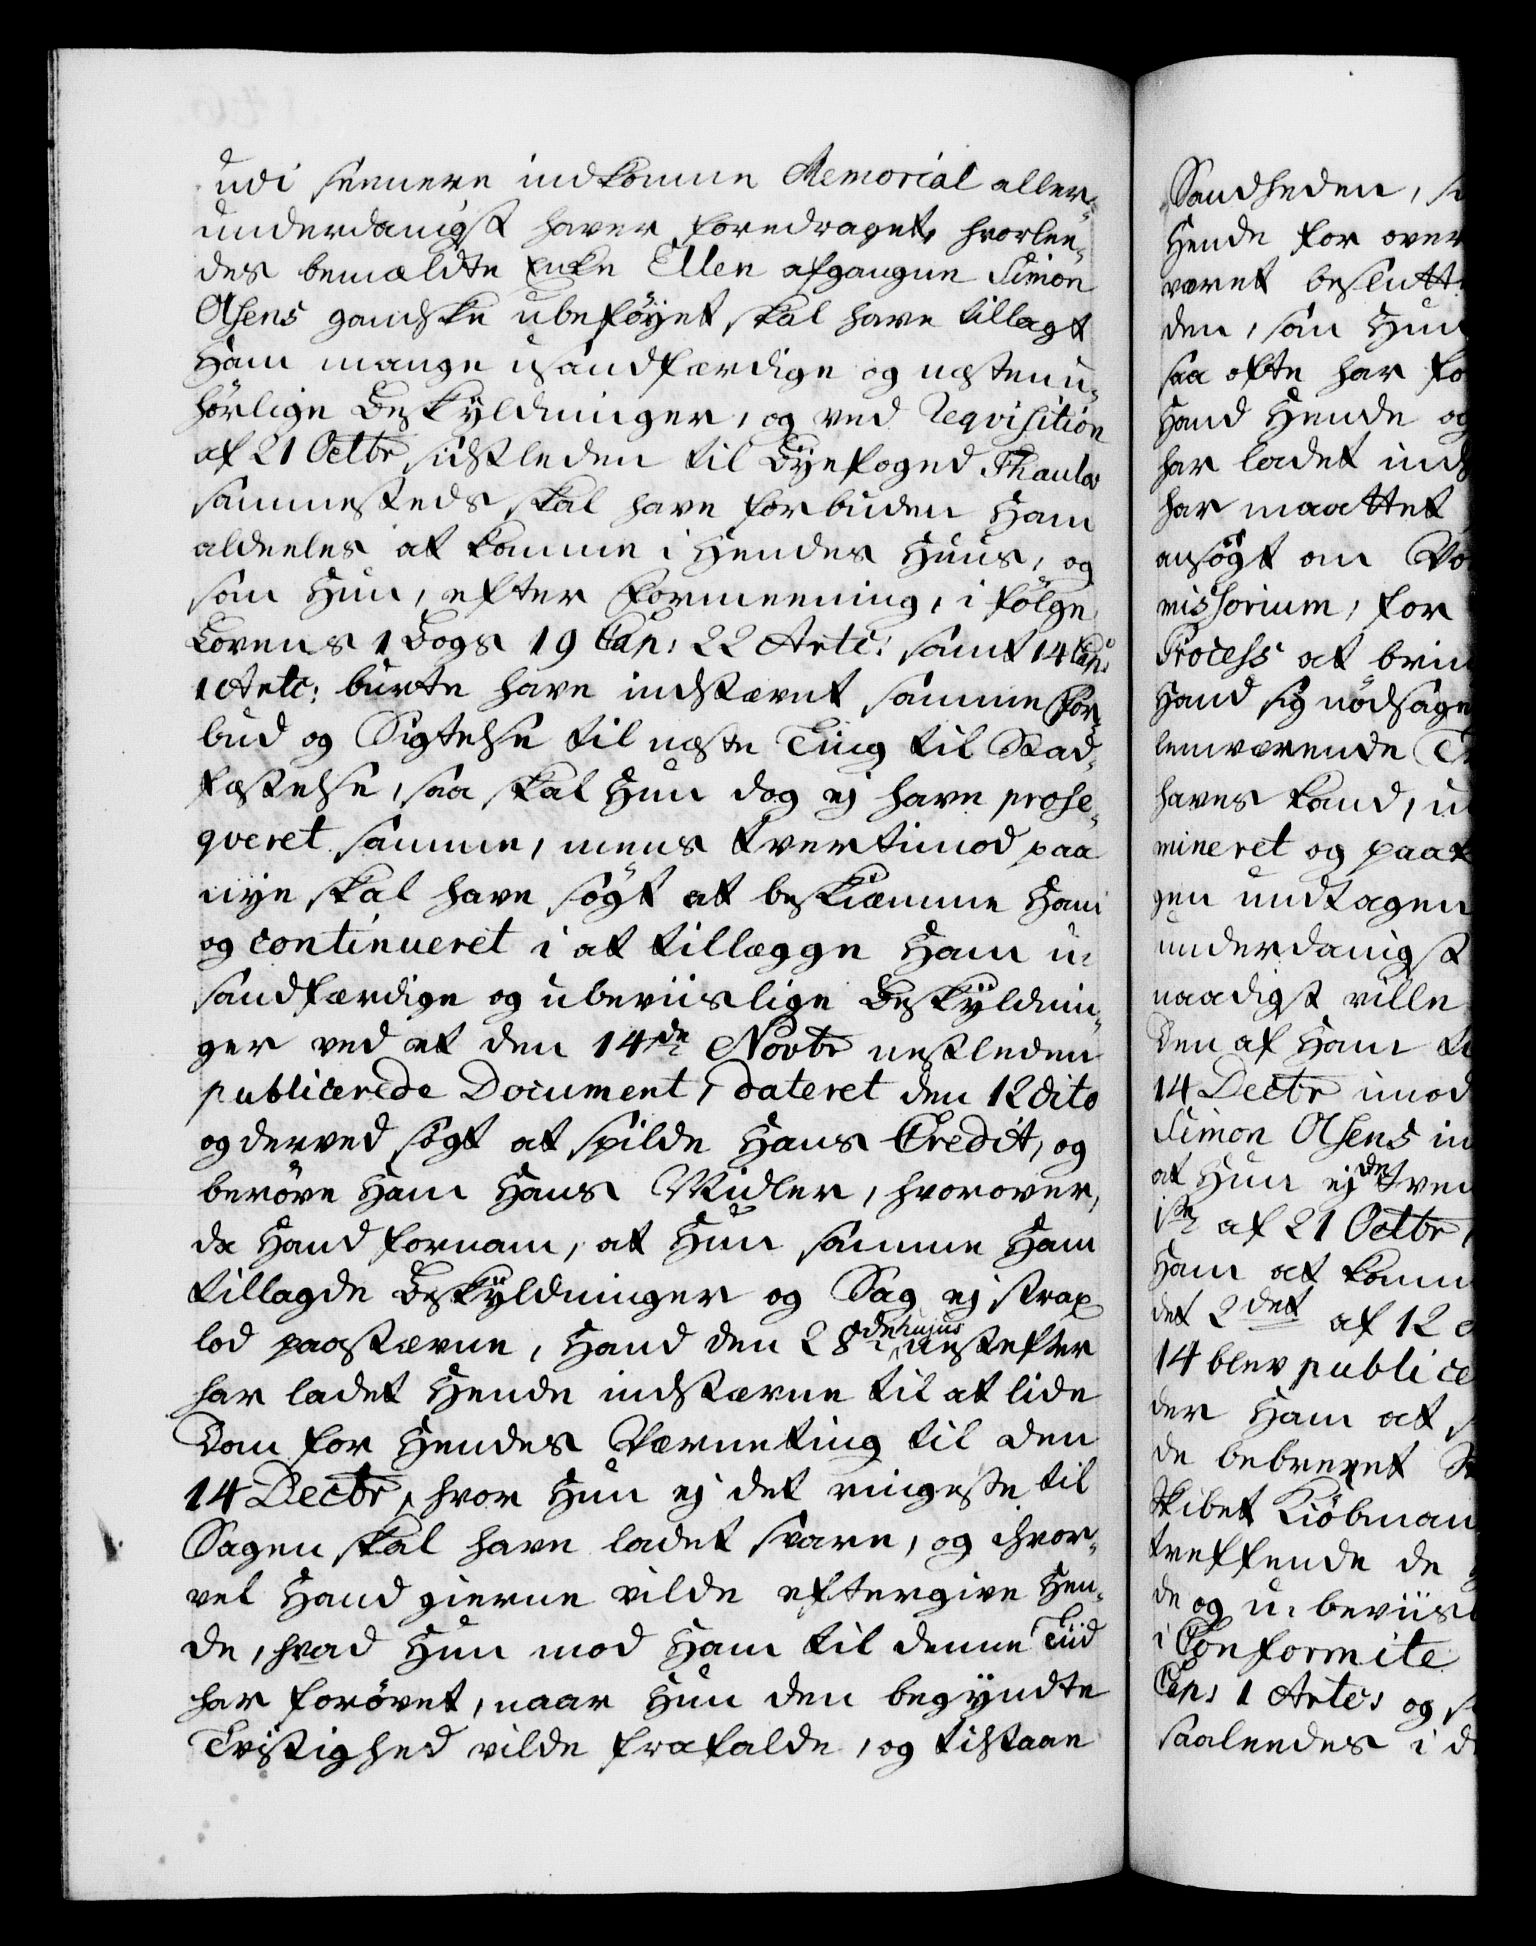 udi sennere indkomne Memorial aller-
underdanigst haver foredraget, hvorlee-
des bemældte Enke Ellen afgangne Simon
Olsens gandske ubeföyet skal have tillagt
Ham mange usandfærdige og næsten u-
hörlige Beskyldninger, og ved Reqvisition
af 21 Octbr sidstleden til Byefoged Thaulow
sammesteds skal have forbuden Ham
aldeeles at komme i Hendes Huus, og
som Hun, efter Formeening, i fölge
Lovens 1 Bogs 19 Cap: 22 Artc: samt 14 Cap:
1 Artc: burte have indstævnt samme For-
bud og Sigtelse til næste Ting til Stad-
fæstelse, saa skal Hun dog ej have prose-
qveret samme, mens tvertimod paa
nye skal have sögt at beskiæmme Ham
og continueret i at tillægge Ham u-
sandfærdige og ubeviislige Beskyldnin-
ger ved et den 14de Novbr nestleden
publicerede Document, dateret den 12 dito
og derved sögt at spilde Hans Credit, og
beröve Ham Hans Midler, hvorover,
da Hand fornam, at Hun samme Ham
tillagde Beskyldninger og Sag ej strax
lod paastævne, Hand den 28de hujus nestefter
har ladet Hende indstævne til at lide
Dom for Hendes Værneting til den
14 Decbr, hvor Hun ej det ringeste til
Sagen skal have ladet svare, og ihvor-
vel Hand gierne vilde eftergive Hen-
de, hvad Hun mod Ham til denne Tiid
har forövet, naar Hun den begyndte
Tvistighed vilde frafalde, og tilstaae
Sandheden, s
Hende for over
været beslutte
den, som Hun
saa ofte har fo
Hand Hende og
har ladet ind
har maattet
ansögt om Vo
missorium, for
Process at brin
Hand sig nödsage
lenværende T
haves kand, u
mineret og paa
gen undtagen
underdanigst
naadigst ville
Den af Ham ti
14 Decbr imod
Simon Olsens in
at Hun ej det ved
1ste af 21 Octbr,
Ham at komm
det 2det af 12
14 blev publice
der Ham at
de bebrevet
Skibet Kiöbman
træffende de
de og u-beviis
i Conformite
Cap: 1 Artc: og
saaleedes i d